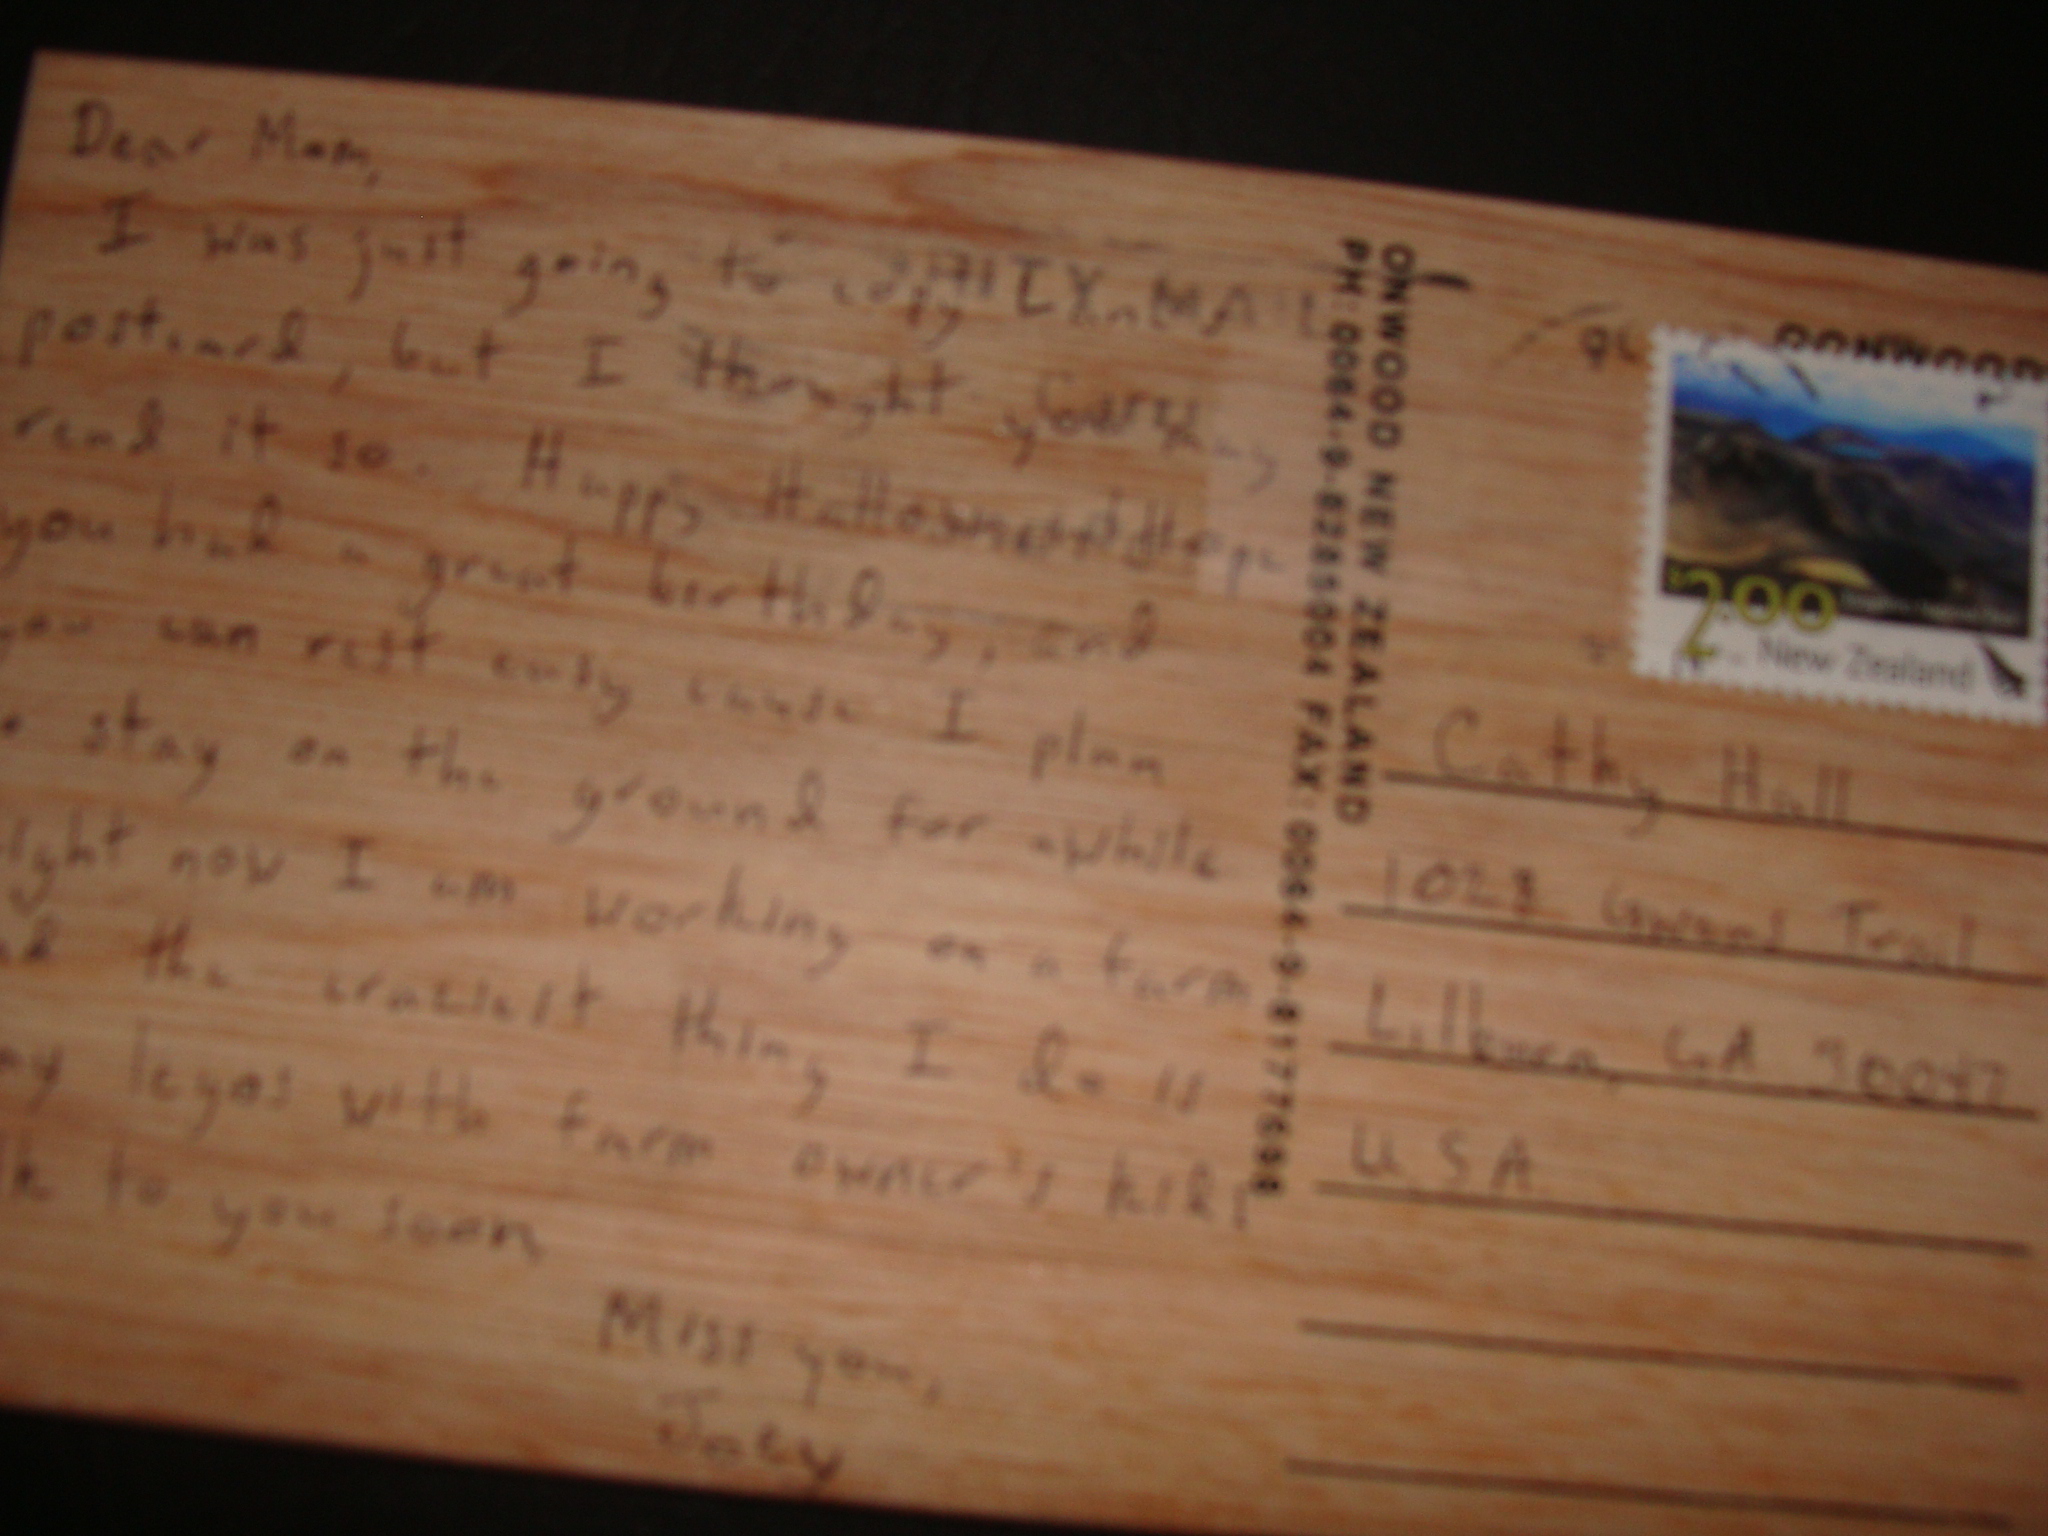 Dear Mom,
I was just going to copy
postcard, but I thought you
read it so. Happy Halloween! Hope
you had a great birthday, and
you can rest easy cause I plan
stay on the ground for awhile
right now I am working on a farm
the craziest thing I do is
legos with farm owner's kid!
to you soon
Miss you,
Joey
ONWOOD NEW ZEALAND
PH: 0064-9-8285004 FAX: 0064-9-8177698
2.00
New Zealand
Cathy Hall
Trail
Lilburn, GA 30047
USA